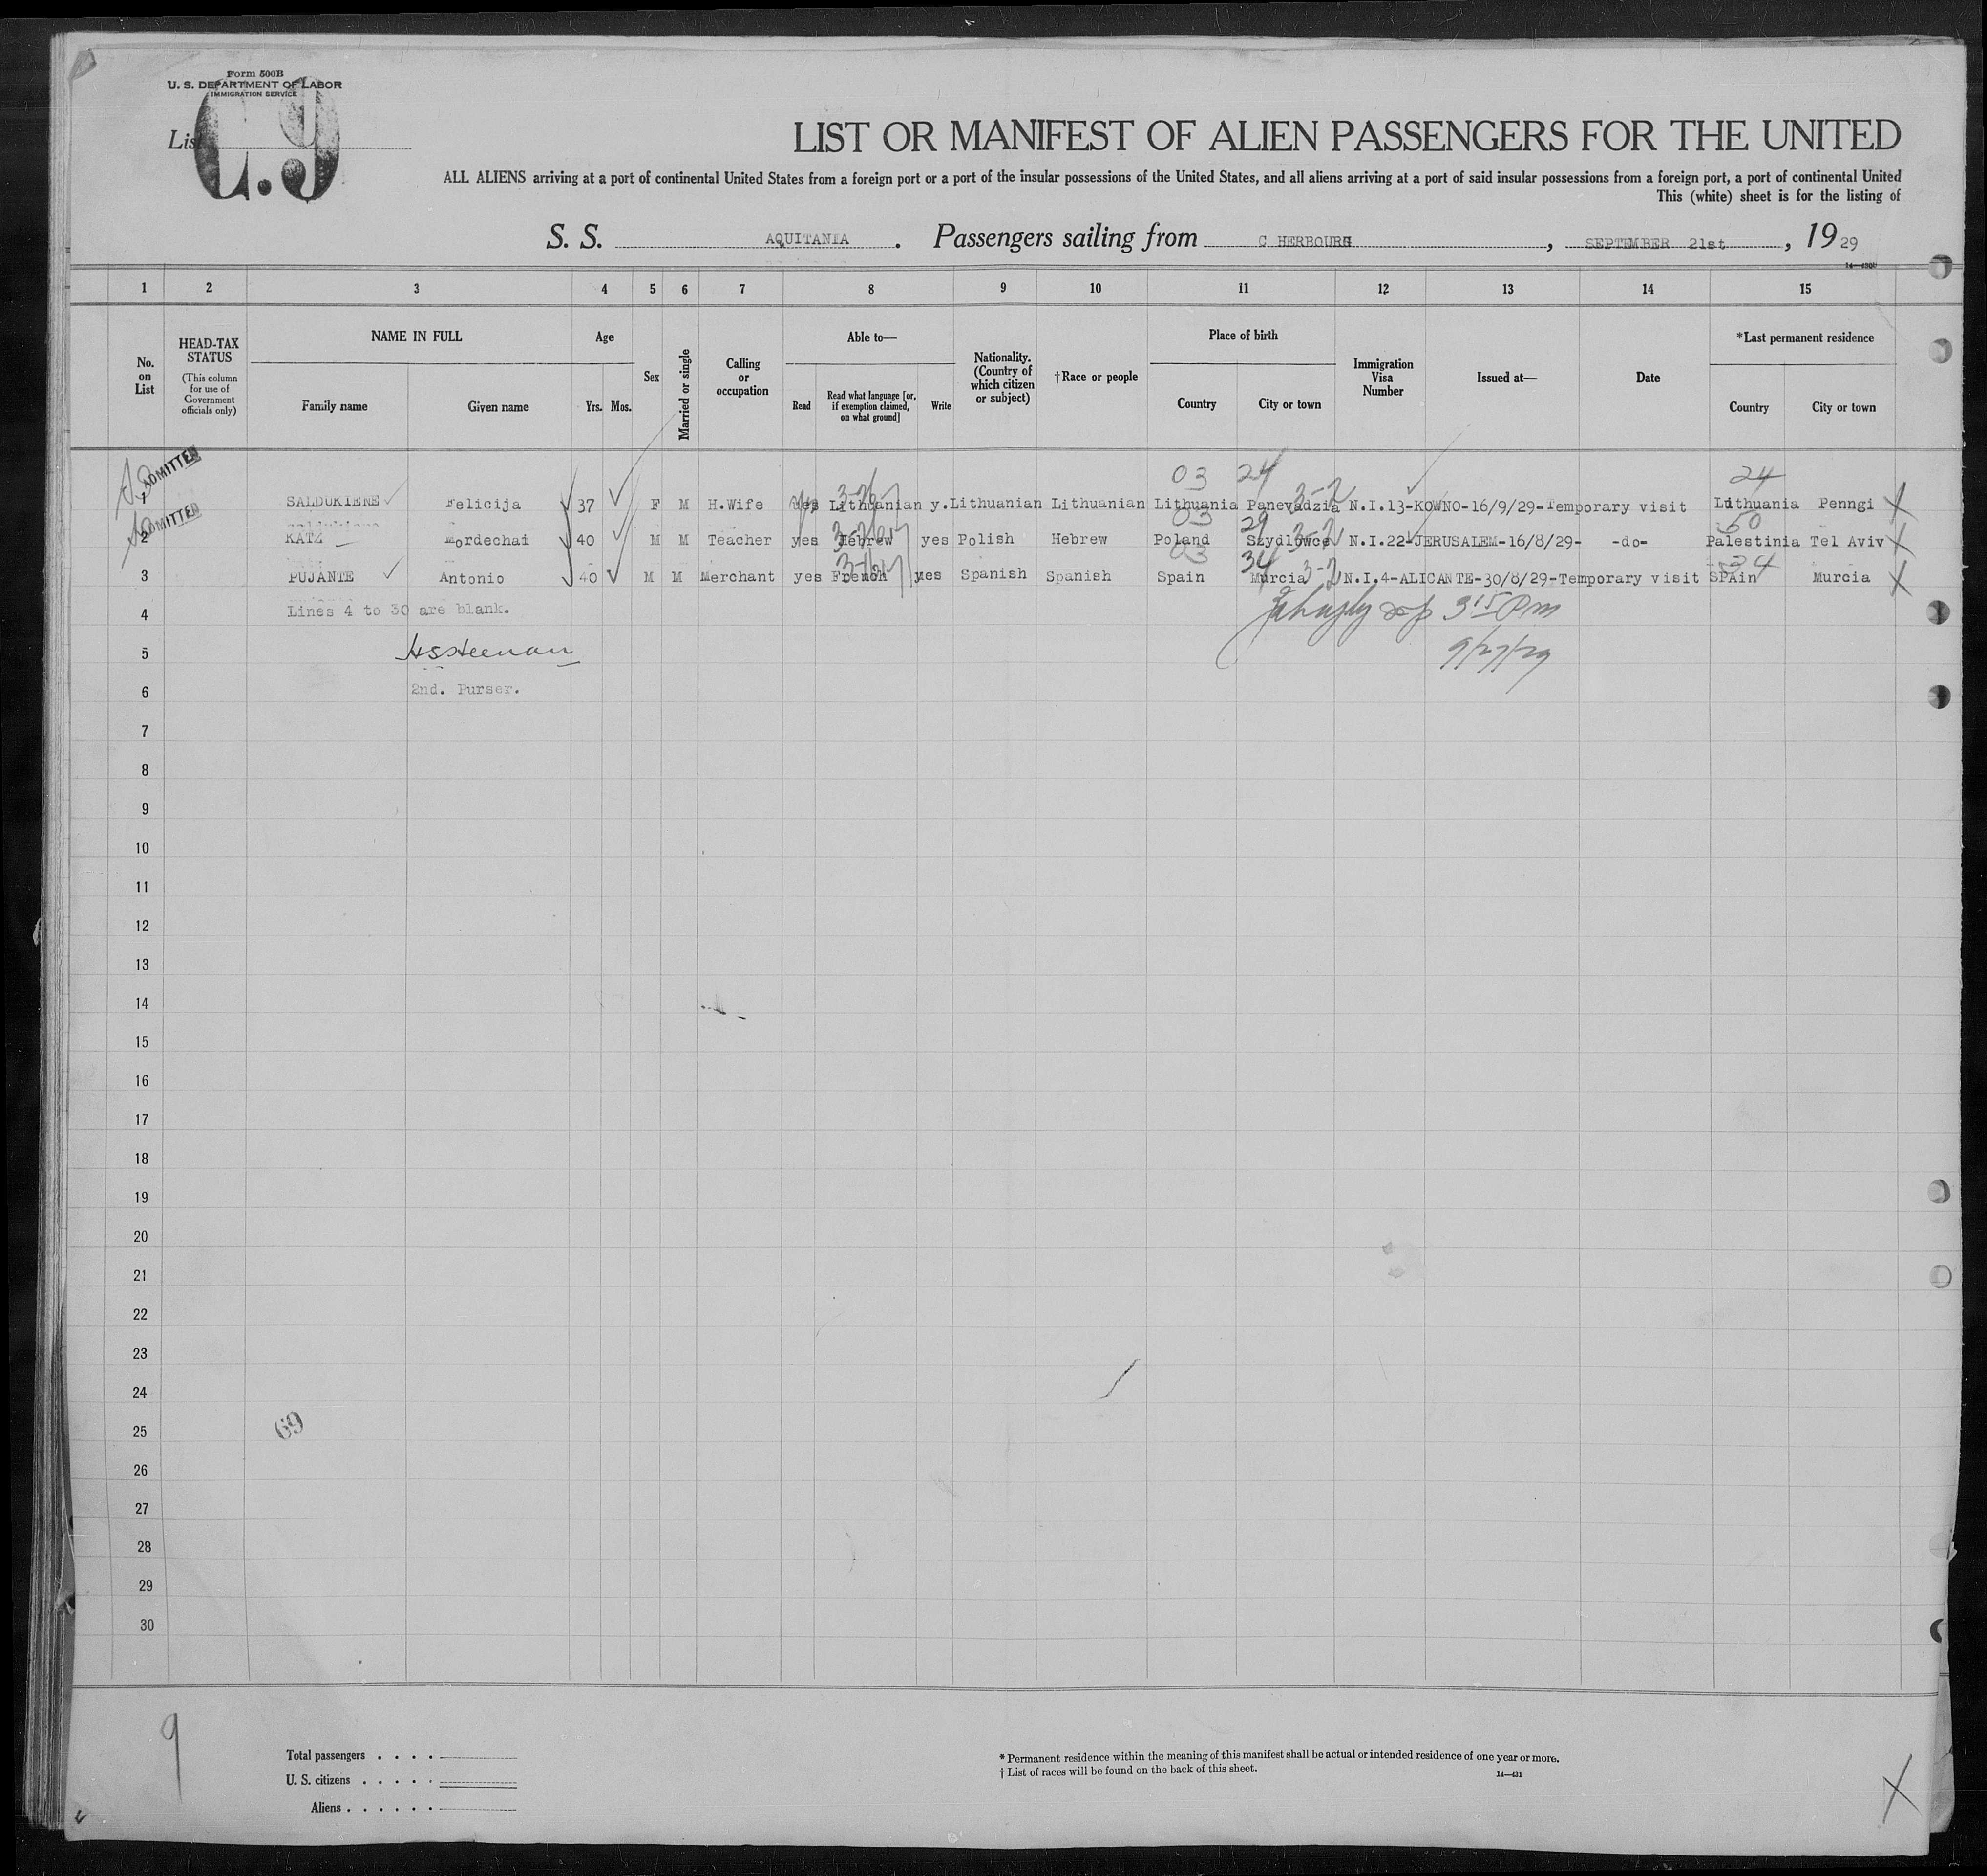 Form 500B
U. S. DEPARTMENT OF LABOR
IMMIGRATION SERVICE
List
LIST OR MANIFEST OF ALIEN PASSENGERS FOR THE UNITED
ALL ALIENS arriving at a port of continental United States from a foreign port or a port of the insular possessions of the United States, and all aliens arriving at a port of said insular possessions from a foreign port, a port of continental United
This (white) sheet is for the listing of
S. S. AQUITANIA . Passengers sailing from C HERBOURG , SEPTEMBER 21st , 19 29
1 2 3 4 5 6 7 8 9 10 11 12 13 14 15
No. on List
HEAD-TAX STATUS
(This column for use of Government officials only)
NAME IN FULL
Family name Given name
Age
Yrs. Mos.
Sex
Married or single
Calling or occupation
Able to—
Read Read what language [or, if exemption claimed, on what ground] Write
Nationality. (Country of which citizen or subject)
†Race or people
Place of birth
Country City or town
Immigration Visa Number
Issued at—
Date
*Last permanent residence
Country City or town
ADMITTED
03 24 24
1 SALDUKIENE Felicija 37 F M H.Wife yes Lithuanian y. Lithuanian Lithuanian Lithuania Panevadzia N.I.13-KOWNO-16/9/29-Temporary visit Lithuania Penngi
ADMITTED
03 29 50
2 KATZ Mordechai 40 M M Teacher yes Hebrew yes Polish Hebrew Poland Szydlowce N.I.22-JERUSALEM-16/8/29- -do- Palestinia Tel Aviv
03 34 34
3 PUJANTE Antonio 40 M M Merchant yes French yes Spanish Spanish Spain Murcia N.I.4-ALICANTE-30/8/29-Temporary visit SPAin Murcia
4 Lines 4 to 30 are blank.
3 15 Pm
5 HSHeenan
9/27/29
6 2nd. Purser.
7
8
9
10
11
12
13
14
15
16
17
18
19
20
21
22
23
24
25
69
26
27
28
29
30
9
Total passengers . . . .
U. S. citizens . . . . .
Aliens . . . . . .
* Permanent residence within the meaning of this manifest shall be actual or intended residence of one year or more.
† List of races will be found on the back of this sheet.
14—431